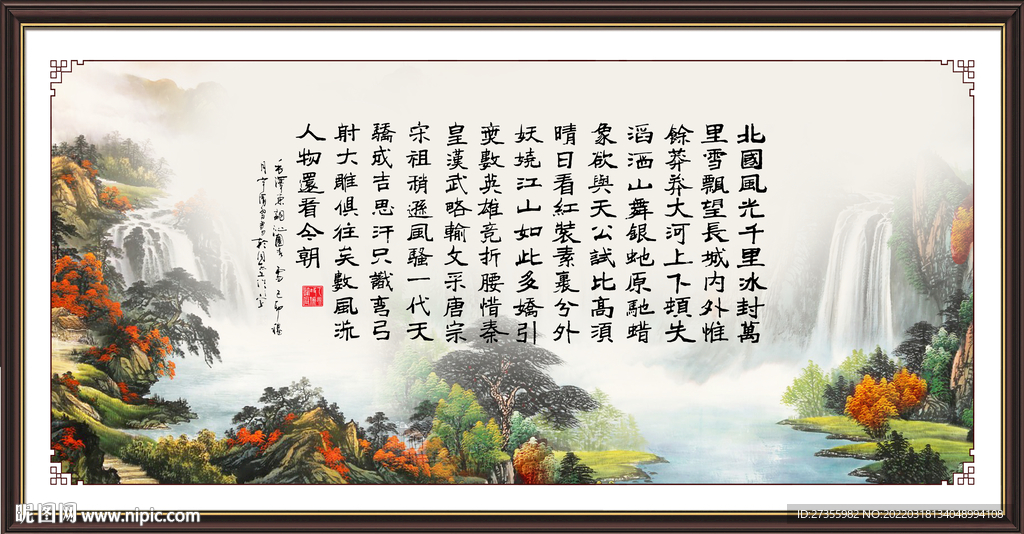 北國風光千里冰封萬
里雪飄望長城內外惟
餘莽莽大河上下頓失
滔滔山舞銀虵原馳蜡
象欲與天公試比高須
晴日看紅裝素裹分外
妖嬈江山如此多嬌引
無數英雄竞折腰惜秦
皇漢武略輸文采唐宗
宋祖稍遜風騷一代天
驕成吉思汗只識彎弓
射大雕俱往矣數風流
人物還看今朝
毛澤東詞沁園春雪
昵图网 www.nipic.com
ID:27355982 NO:20220318134048994108